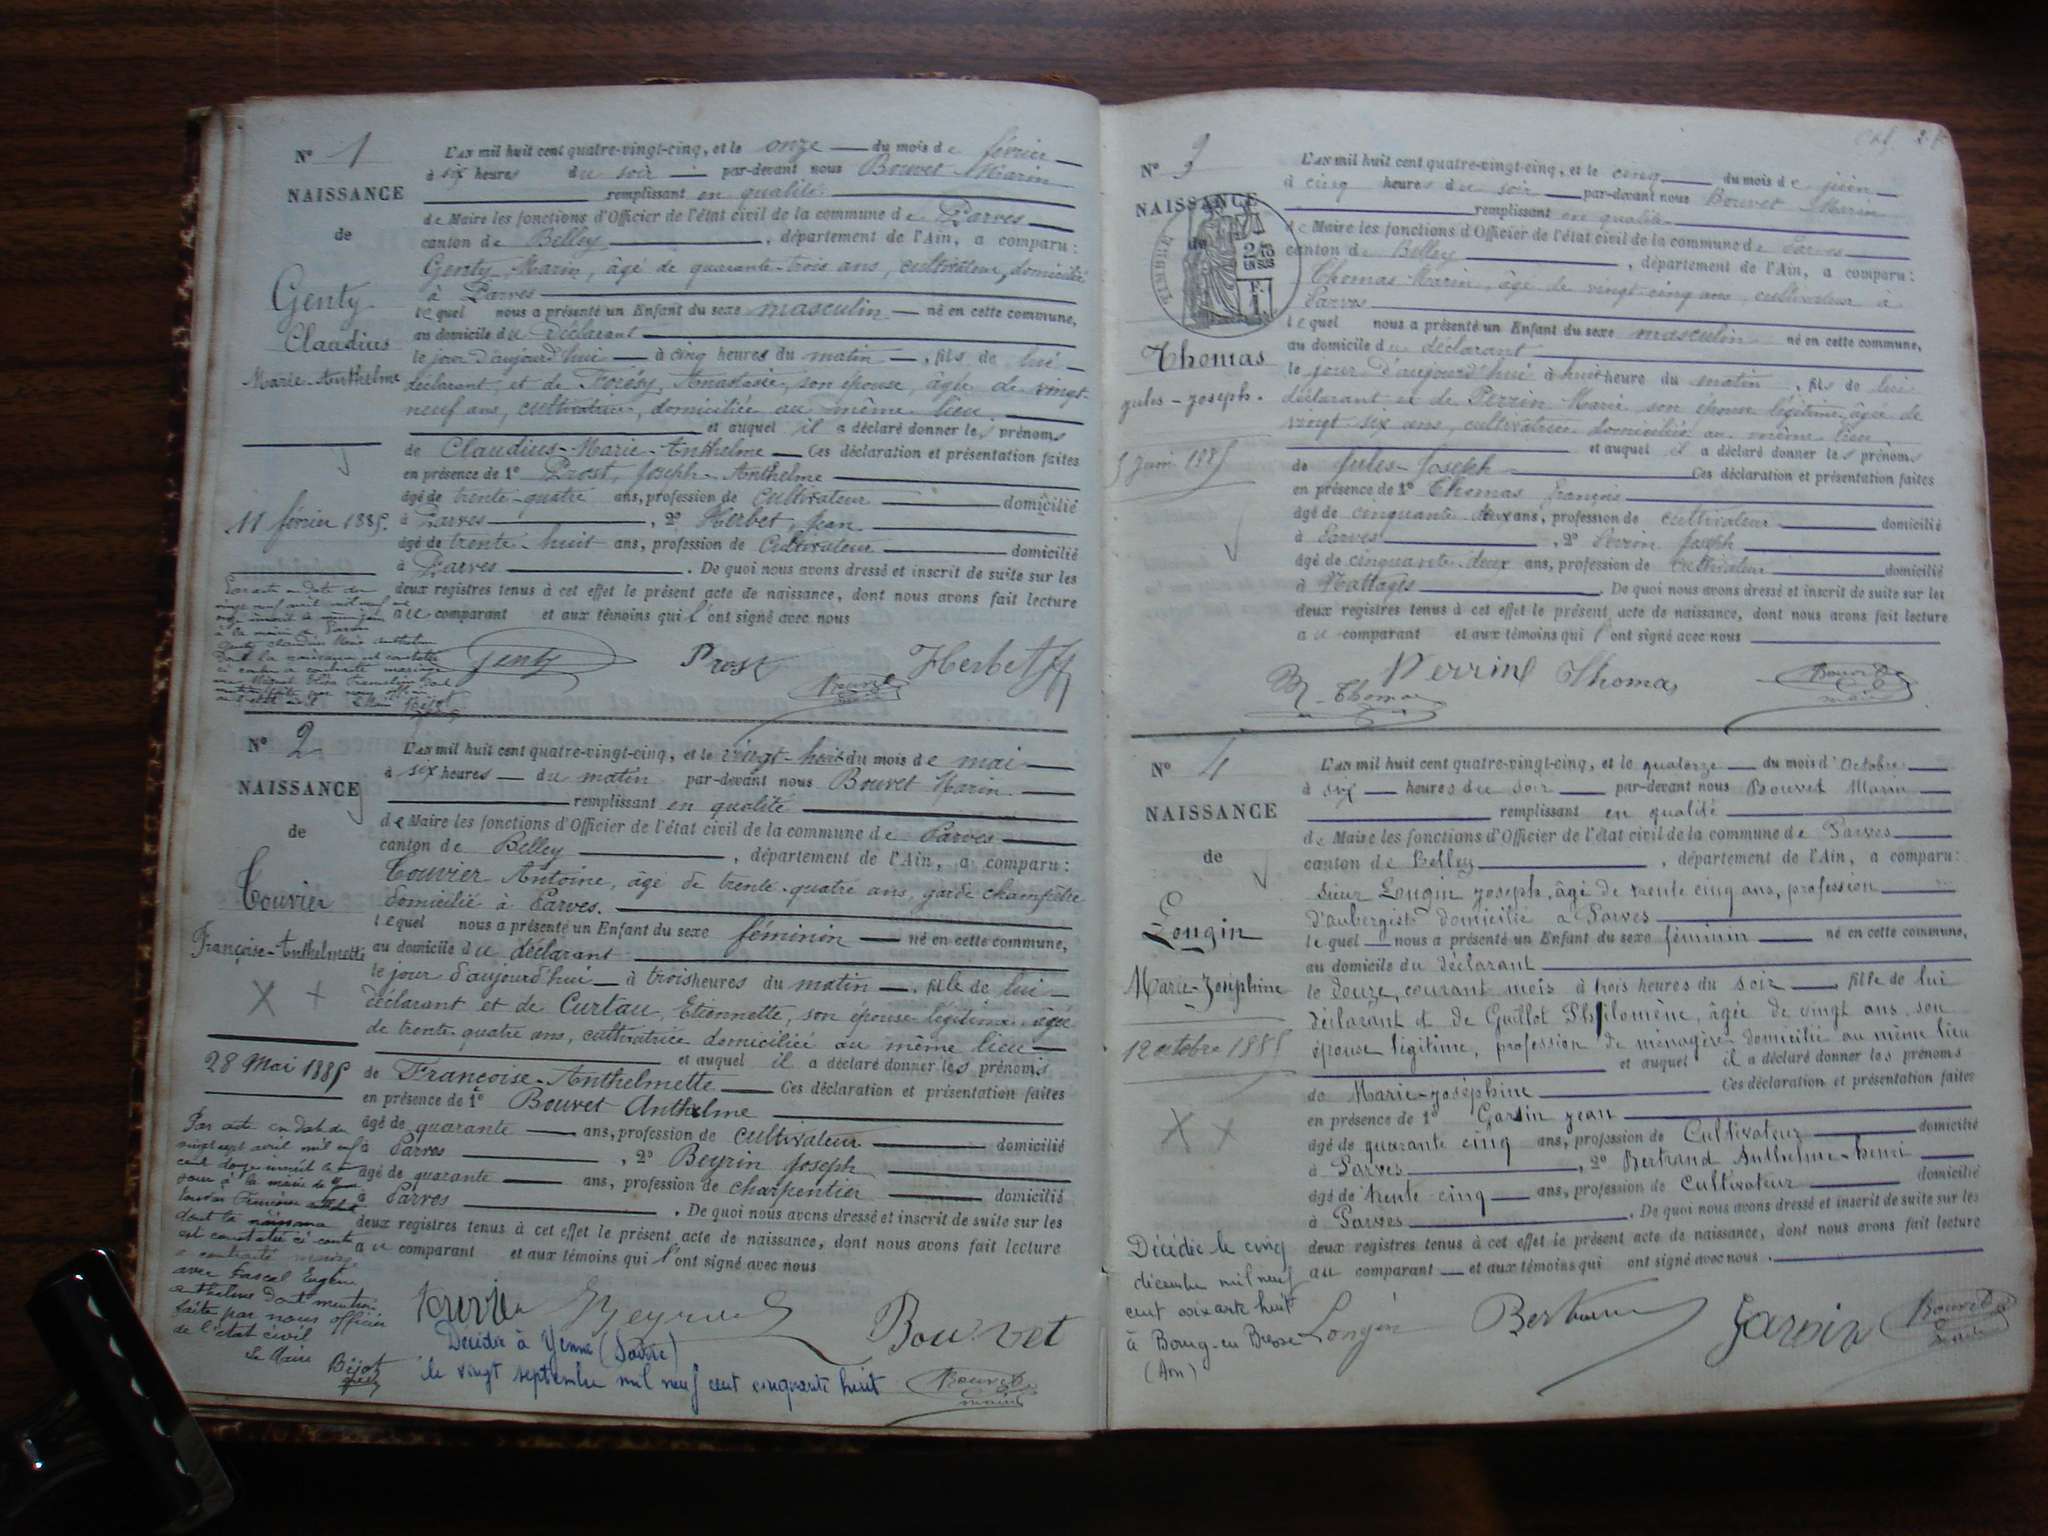 N° 1
NAISSANCE
de
Genty
Claudius
Marie-Anthelme
11 février 1885.
L'AN mil huit cent quatre-vingt-cinq, et le onze du mois de février
à six heures du soir par-devant nous Bouvet Marin
remplissant en qualité
de Maire les fonctions d'Officier de l'état civil de la commune de Parves
canton de Belley, département de l'Ain, a comparu:
Genty Marin, âgé de quarante-trois ans, cultivateur, domicilié
à Parves
lequel nous a présenté un Enfant du sexe masculin né en cette commune,
au domicile du déclarant
le jour d'aujourd'hui à cinq heures du matin, fils de lui
déclarant, et de Anastasie, son épouse, âgée de vingt
neuf ans, cultivatrice, domiciliée au même lieu.
et auquel il a déclaré donner les prénoms
de Claudius-Marie-Anthelme Ces déclaration et présentation faites
en présence de 1° Prost, Joseph-Anthelme
âgé de trente-quatre ans, profession de Cultivateur domicilié
à Parves, 2° Herbet, Jean
âgé de trente-huit ans, profession de Cultivateur domicilié
à Parves. De quoi nous avons dressé et inscrit de suite sur les
deux registres tenus à cet effet le présent acte de naissance, dont nous avons fait lecture
au comparant et aux témoins qui l'ont signé avec nous
Par acte en date du
à la mairie de
Genty Claudius Marie Anthelme
dont la naissance est constatée
ci contre a contracté mariage
Le Maire Béjot
Genty Prost Herbet
Bouvet
maire
N° 2
NAISSANCE
de
Touvier
Françoise-Anthelmette
28 Mai 1885
L'AN mil huit cent quatre-vingt-cinq, et le vingt-huit du mois de mai
à six heures du matin par-devant nous Bouvet Marin
remplissant en qualité
de Maire les fonctions d'Officier de l'état civil de la commune de Parves
canton de Belley, département de l'Ain, a comparu:
Touvier Antoine, âgé de trente-quatre ans, garde champêtre
domicilié à Parves.
lequel nous a présenté un Enfant du sexe féminin né en cette commune,
au domicile du déclarant
le jour d'aujourd'hui à trois heures du matin, fille de lui
déclarant et de Curtau, Etiennette, son épouse légitime, âgée
de trente-quatre ans, cultivatrice domiciliée au même lieu
et auquel il a déclaré donner les prénoms
de Françoise-Anthelmette Ces déclaration et présentation faites
en présence de 1° Bouvet Anthelme
âgé de quarante ans, profession de cultivateur domicilié
à Parves, 2° Beyrin Joseph
âgé de quarante ans, profession de charpentier domicilié
à Parves. De quoi nous avons dressé et inscrit de suite sur les
deux registres tenus à cet effet le présent acte de naissance, dont nous avons fait lecture
au comparant et aux témoins qui l'ont signé avec nous
Par acte en date du
vingt sept avril mil neuf
cent douze inscrit le
jour à la mairie de
Touvier
dont la naissance
est constatée ci contre
a contracté mariage
avec Pascal Eugène
Anthelme dont mention
faite par nous officier
de l'état civil
Le Maire Béjot
Touvier Beyrin Bouvet
Décédée à Yenne (Savoie)
le vingt septembre mil neuf cent cinquante huit
Bouvet
maire
N° 3
NAISSANCE
de
TIMBRE
2/10
EN SUS
Thomas
Jules-Joseph.
5 juin 1885
L'AN mil huit cent quatre-vingt-cinq, et le cinq du mois de juin
à cinq heures du soir par-devant nous Bouvet Marin
remplissant en qualité
de Maire les fonctions d'Officier de l'état civil de la commune de Parves
canton de Belley, département de l'Ain, a comparu:
Thomas Marin, âgé de vingt-cinq ans, cultivateur à
Parves
lequel nous a présenté un Enfant du sexe masculin né en cette commune,
au domicile du déclarant
le jour d'aujourd'hui à huit heure du matin, fils de lui
déclarant et de Perrin Marie son épouse légitime âgée de
vingt six ans, cultivatrice domiciliée au même lieu
et auquel il a déclaré donner les prénoms
de Jules-Joseph Ces déclaration et présentation faites
en présence de 1° Thomas François
âgé de cinquante deux ans, profession de cultivateur domicilié
à Parves, 2° Perrin Joseph
âgé de cinquante-deux ans, profession de Cultivateur domicilié
à Nattages. De quoi nous avons dressé et inscrit de suite sur les
deux registres tenus à cet effet le présent acte de naissance, dont nous avons fait lecture
au comparant et aux témoins qui l'ont signé avec nous
Thomas Perrin Thomas Bouvet
maire
N° 4
NAISSANCE
de
Longin
Marie-Joséphine
12 octobre 1885
L'AN mil huit cent quatre-vingt-cinq, et le quatorze du mois d'Octobre
à six heures du soir par-devant nous Bouvet Marin
remplissant en qualité
de Maire les fonctions d'Officier de l'état civil de la commune de Parves
canton de Belley, département de l'Ain, a comparu:
Sieur Longin Joseph, âgé de trente cinq ans, profession
d'aubergiste domicilié à Parves
lequel nous a présenté un Enfant du sexe féminin né en cette commune,
au domicile du déclarant
le douze, courant mois à trois heures du soir, fille de lui
déclarant et de Guillot Philomène, âgée de vingt ans, son
épouse légitime, profession de ménagère domicilié au même lieu
et auquel il a déclaré donner les prénoms
de Marie-Joséphine Ces déclaration et présentation faites
en présence de 1° Garsin Jean
âgé de quarante cinq ans, profession de Cultivateur domicilié
à Parves, 2° Bertrand Anthelme-Henri
âgé de trente-cinq ans, profession de Cultivateur domicilié
à Parves. De quoi nous avons dressé et inscrit de suite sur les
deux registres tenus à cet effet le présent acte de naissance, dont nous avons fait lecture
au comparant et aux témoins qui ont signé avec nous.
Décédée le cinq
décembre mil neuf
cent soixante huit
à Bourg-en Bresse
(Ain)
Longin Bertrand Garsin Bouvet